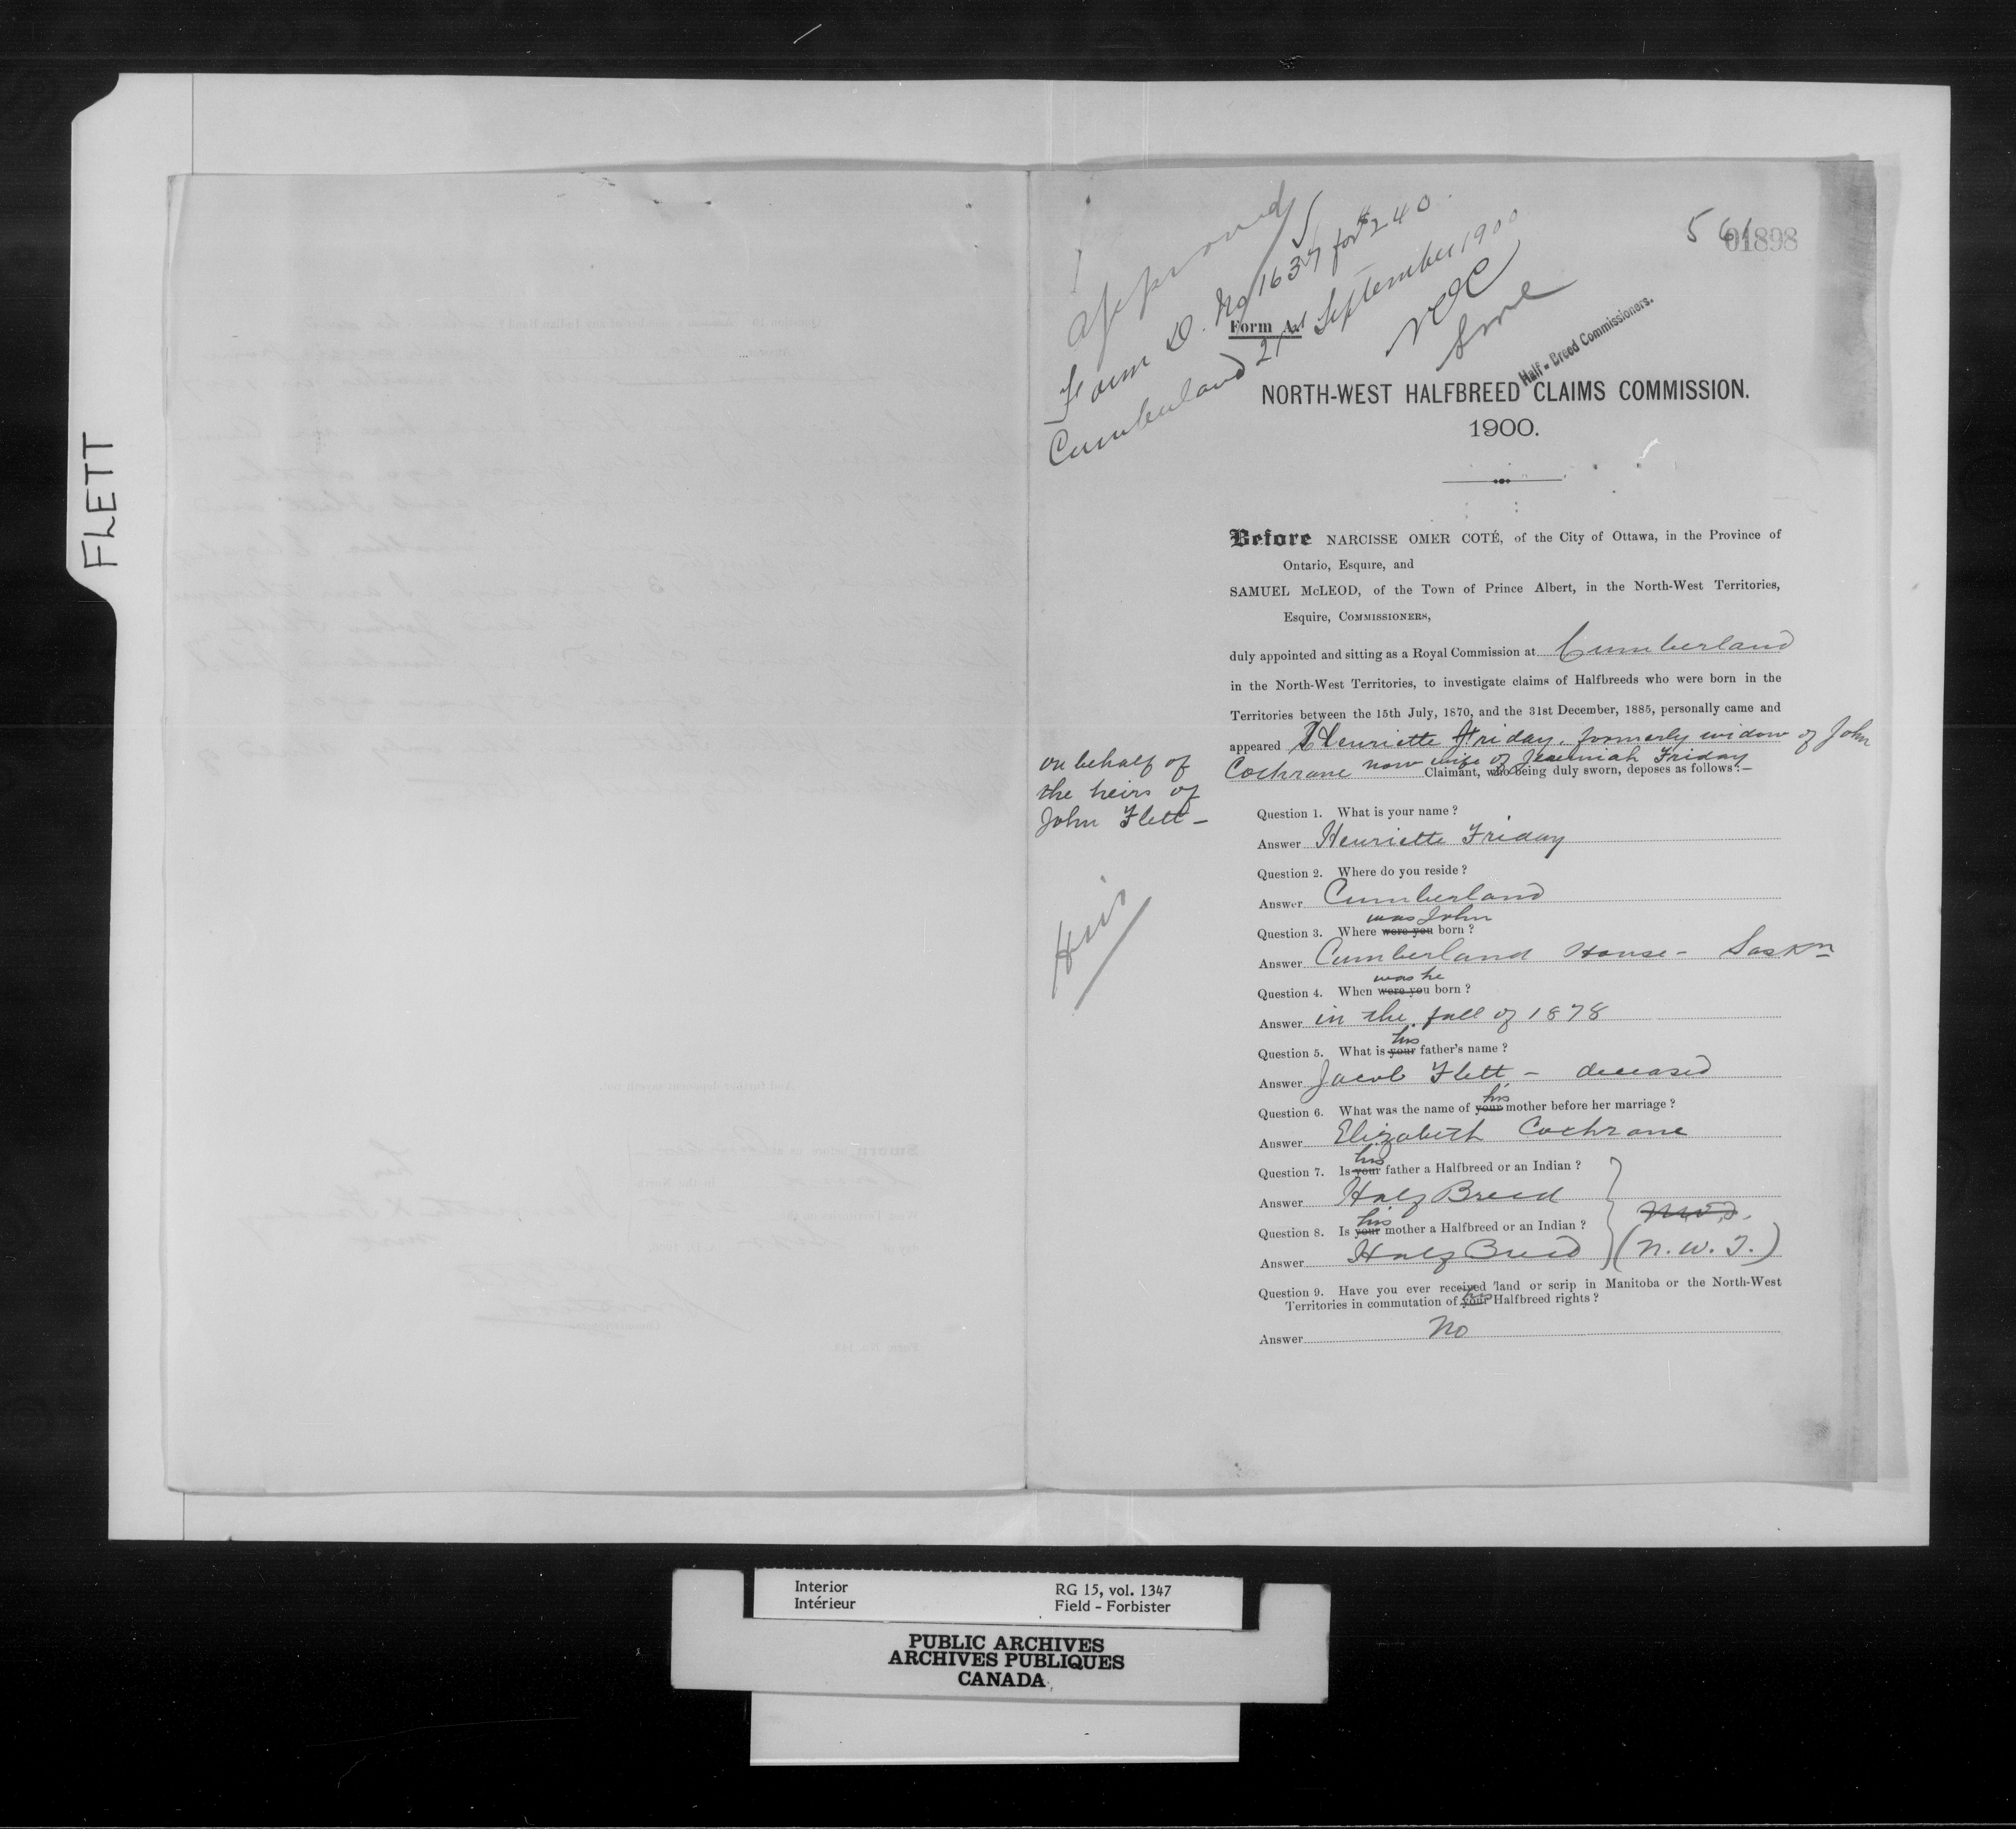 FLETT
approved
Form D. No 1637 for $240.
Cumberland 21st September 1900
NOC
SML
561
01898
Form A.
Half-Breed Commissioners.
NORTH-WEST HALFBREED CLAIMS COMMISSION.
1900.
Before NARCISSE OMER COTÉ, of the City of Ottawa, in the Province of
Ontario, Esquire, and
SAMUEL McLEOD, of the Town of Prince Albert, in the North-West Territories,
Esquire, COMMISSIONERS,
duly appointed and sitting as a Royal Commission at Cumberland
in the North-West Territories, to investigate claims of Halfbreeds who were born in the
Territories between the 15th July, 1870, and the 31st December, 1885, personally came and
appeared Henriette Friday, formerly widow of John
Cochrane now wife of Jeremiah Friday
Claimant, who being duly sworn, deposes as follows:—
on behalf of
the heirs of
John Flett —
Heirs
Question 1. What is your name?
Answer Henriette Friday
Question 2. Where do you reside?
Answer Cumberland
was John
Question 3. Where were you born?
Answer Cumberland House - Saskn
was he
Question 4. When were you born?
Answer in the fall of 1878
his
Question 5. What is your father's name?
Answer Jacob Flett - deceased
his
Question 6. What was the name of your mother before her marriage?
Answer Elizabeth Cochrane
his
Question 7. Is your father a Halfbreed or an Indian?
Answer Half Breed
his
Question 8. Is your mother a Halfbreed or an Indian?
Answer Half Breed (N.W.T.)
Question 9. Have you ever received land or scrip in Manitoba or the North-West
his
Territories in commutation of your Halfbreed rights?
Answer No
Interior RG 15, vol. 1347
Intérieur Field - Forbister
PUBLIC ARCHIVES
ARCHIVES PUBLIQUES
CANADA